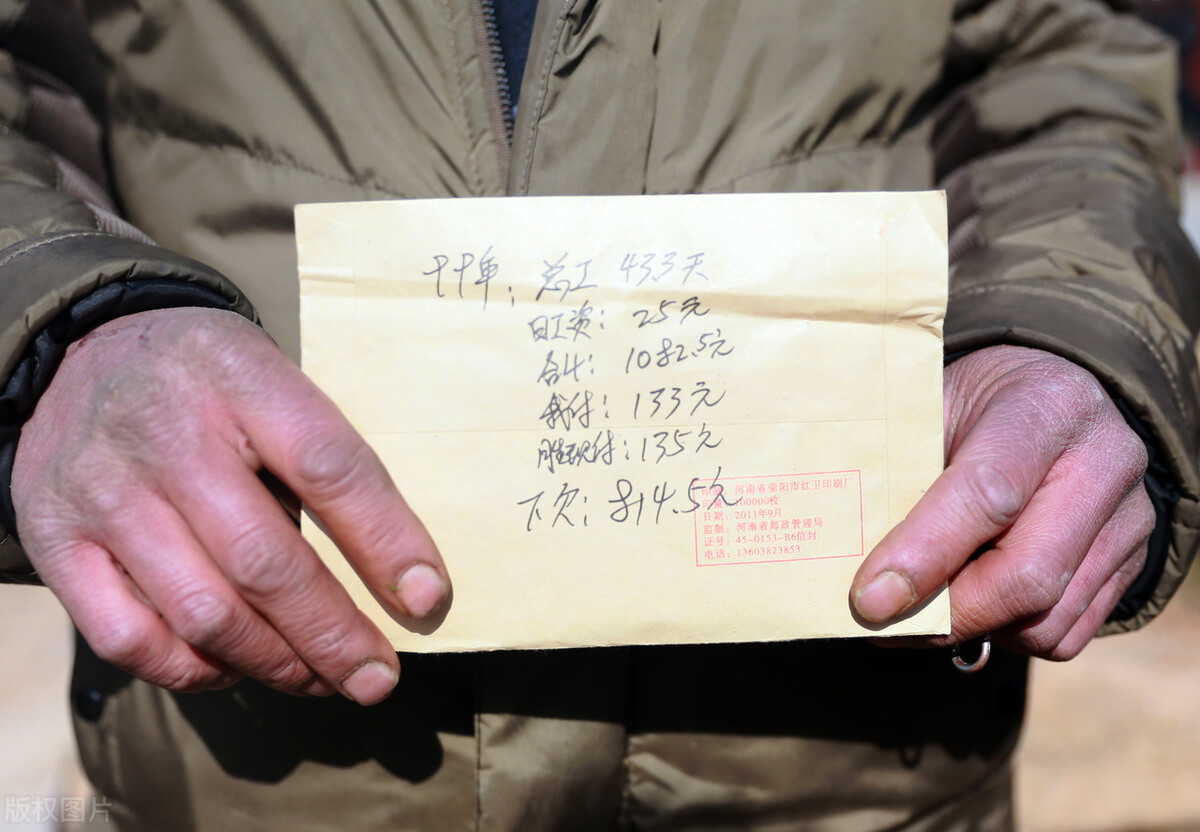 总工 433天
日工资: 25元
合计: 1082.5元
我付: 133元
胜现付: 135元
下欠: 814.5元
河南省荥阳市红卫印刷厂
100000枚
日期: 2011年9月
监制: 河南省邮政管理局
证号: 45-0153-B6信封
电话: 13603823853
版权图片